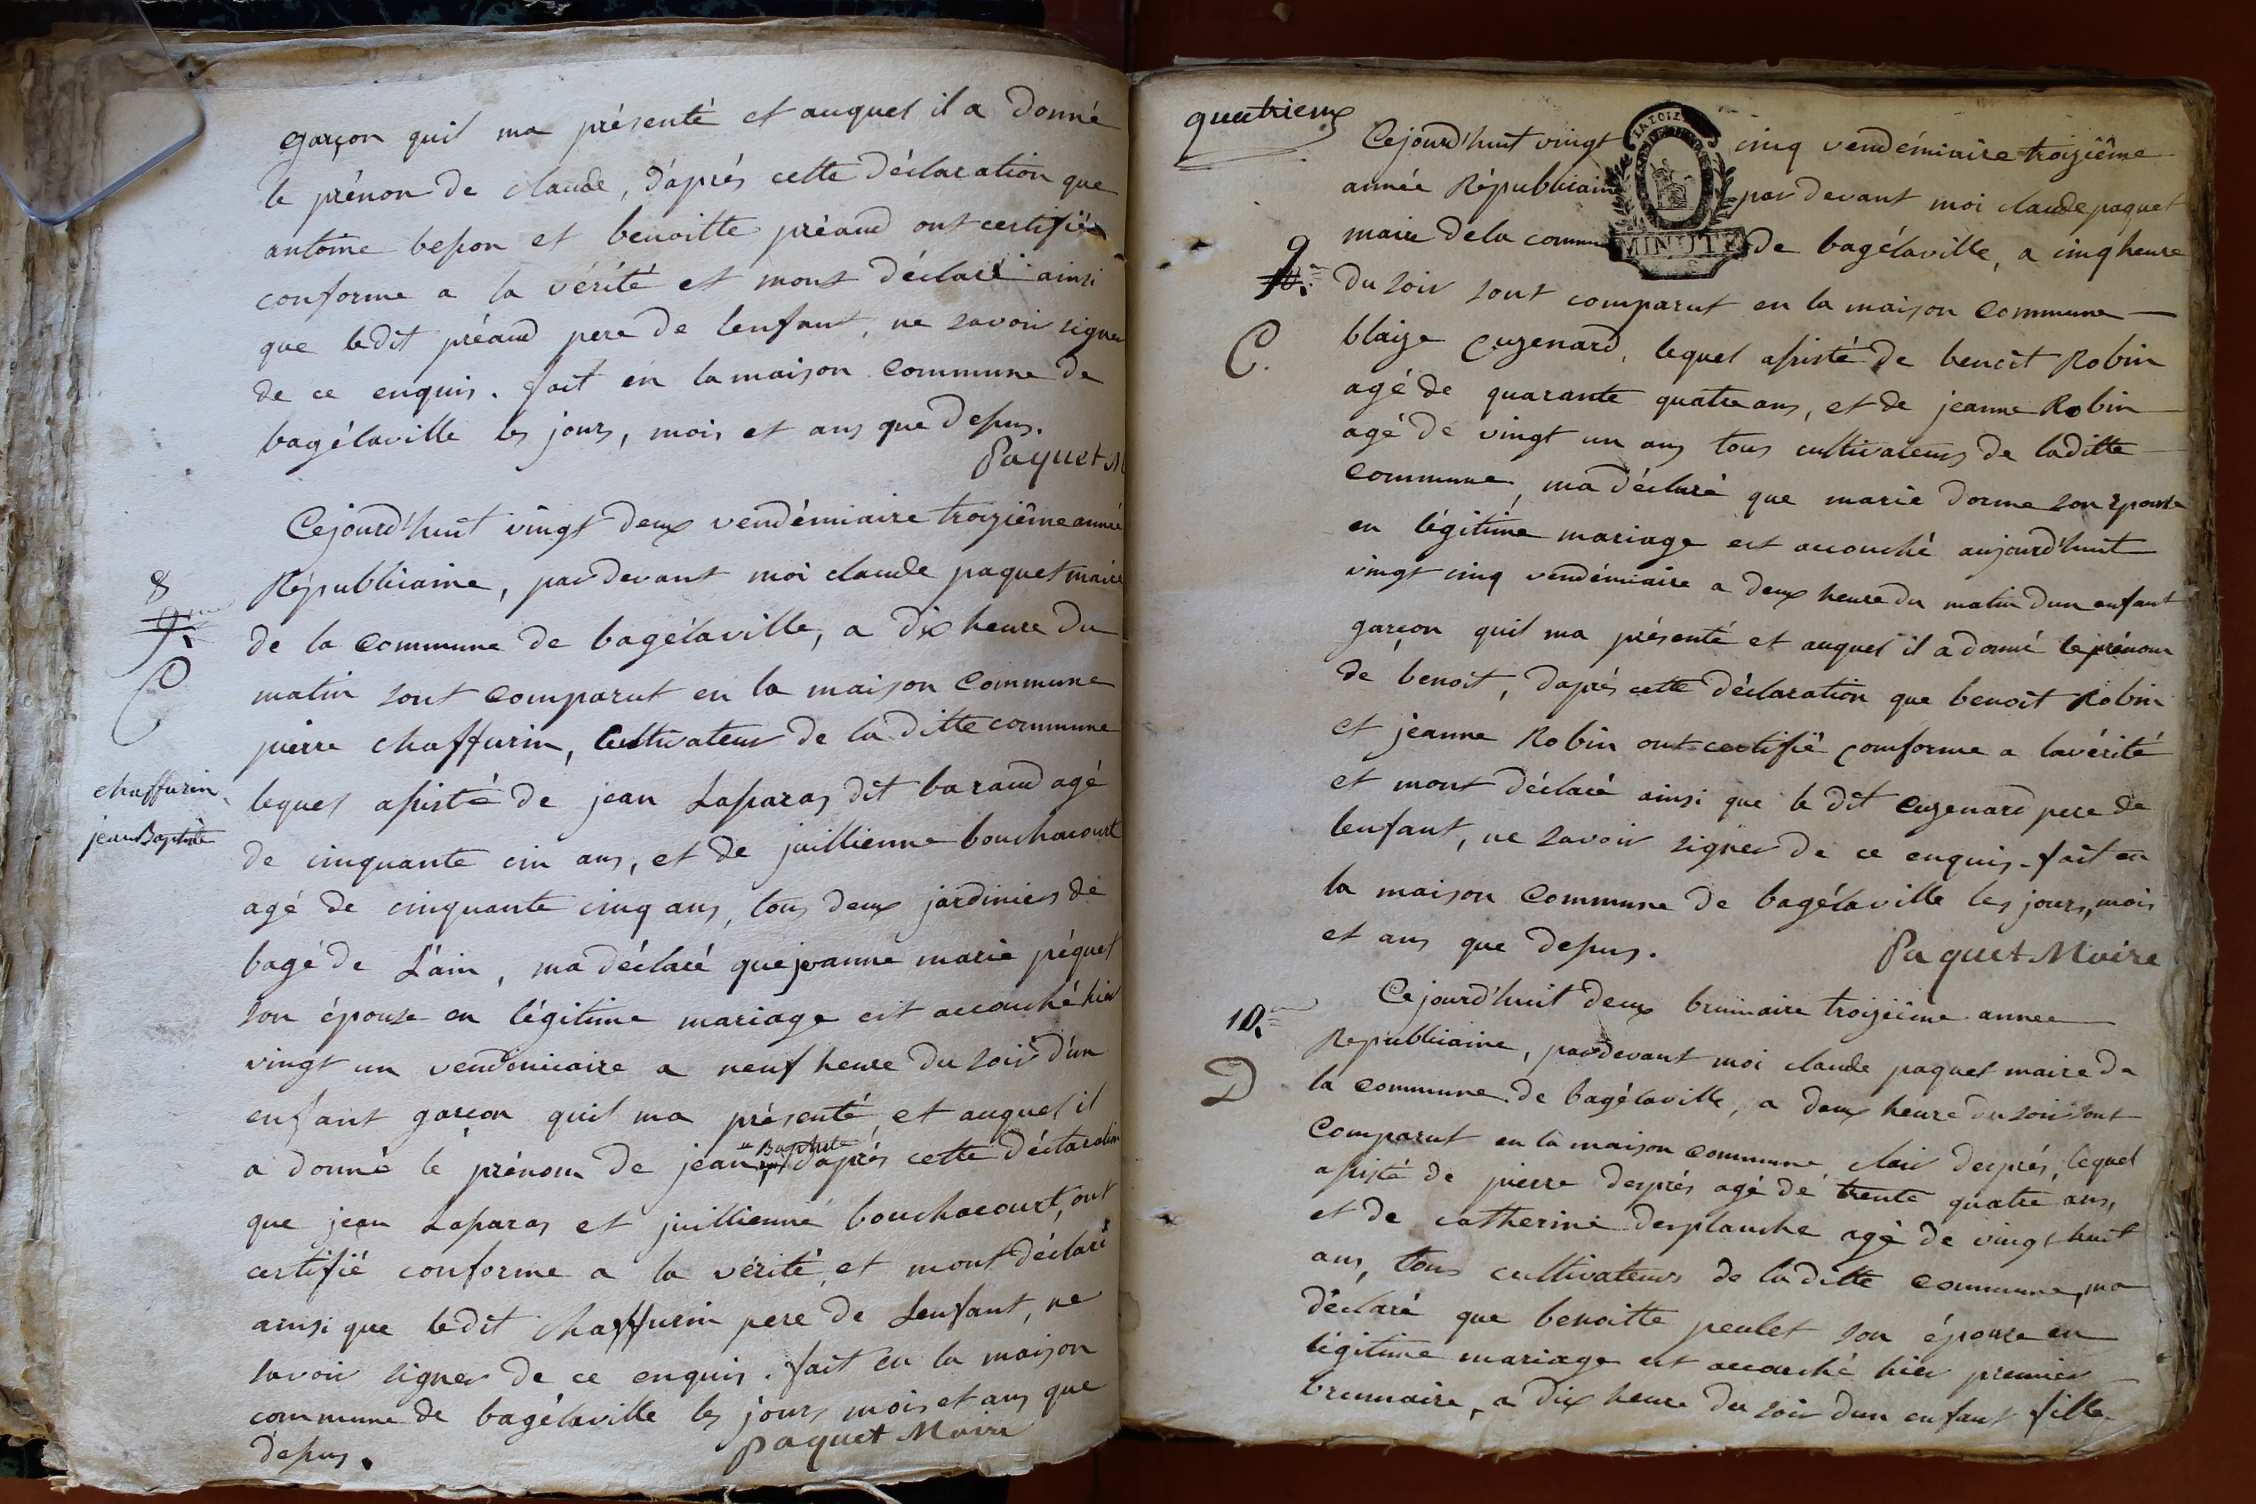 garçon quil ma présenté et auquel il a donné
le prénon de claude, d'aprés cette déclaration que
antoine besson et benoitte préaud ont certifié
conforme a la vérité et mont déclaré ainsi
que ledit préaud pere de lenfant, ne savoir signer
de ce enquis. fait en la maison commune de
bagélaville les jours, mois et ans que dessus.
Paquet M
Cejourd'huit vingt deux vendémiaire troizième année
Républicaine, par devant moi claude paquet maire
8
9.me
de la commune de bagélaville, a dix heure du
C
matin sont comparut en la maison commune
pierre chaffurin, Cultivateur de la ditte commune
chaffurin
jean Baptiste
lequel assisté de jean Laparas dit baraud agé
de cinquante cin ans, et de juillienne bouchacourt
agé de cinquante cinq ans, tous deux jardiniers de
bagé de L'ain, ma déclaré que jeanne marie péquet
son épouse en légitime mariage est accouché hier
vingt un vendémiaire a neuf heure du soir d'un
enfant garçon quil ma présenté, et auquel il
a donné le prénom de jean Baptiste d'aprés cette déclaration
que jean Laparas et juillienne bouchacourt, ont
certifié conforme a la vérité, et mont déclaré
ainsi que ledit chaffurin pere de Lenfant, ne
savoir signer de ce enquis. fait en la maison
commune de bagélaville les jours mois et ans que
dessus.
Paquet Maire
quatrieme
Cejourd'huit vingt cinq vendémiaire troizième
année Républicaine par devant moi claude paquet
maire de la commune de bagélaville, a cinq heure
MINUTE
9
10.me
du soir sont comparut en la maison commune
C.
blaize Cuzenard, lequel assisté de benoît Robin
agé de quarante quatre ans, et de jeanne Robin
agé de vingt un ans tous cultivateurs de laditte
commune, ma déclaré que marie dorme son épouse
en légitime mariage est accouché aujourd'huit
vingt cinq vendémiaire a deux heure du matin dun enfant
garçon quil ma présenté et auquel il a donné le prénom
de benoît, daprés cette déclaration que benoît Robin
et jeanne Robin ont certifié conforme a la vérité
et mont déclaré ainsi que le dit Cuzenard pere de
lenfant, ne savoir signer de ce enquis. fait en
la maison commune de bagélaville les jours, mois
et ans que dessus.
Paquet Maire
Cejourd'huit deux brumaire troizième année
10.me
Republicaine, par devant moi claude paquet maire de
D
la commune de bagélaville, a deux heure du soir sont
comparut en la maison commune clair després, lequel
assisté de pierre després agé de trente quatre ans,
et de catherine desplanche agé de vingt huit
ans, tous cultivateurs de laditte commune, ma
déclaré que benoitte peulet son épouse en
légitime mariage est accouché hier premier
brumaire, a dix heure du soir dun enfant fille